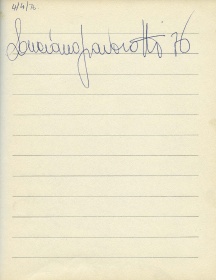 4/4/76
Luciano Pavarotti 76